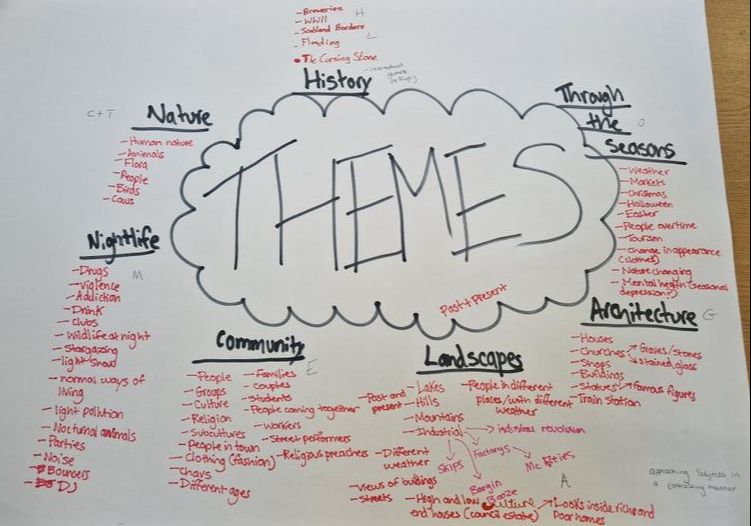 - Breweries
- WWII
- Scotland Borders
- Flooding
• The Cursing Stone
H
L
History
C+T
Nature
- Human nature
- Animals
- Flora
- People
- Birds
- Cows
Through
the
Seasons
O
- Weather
- Markets
- Christmas
- Halloween
- Easter
- People overtime
- Tourism
- Change in appearance
(clothes)
- Nature changing
- Mental health (seasonal
depression?)
THEMES
Past + Present
Nightlife
M
- Drugs
- Violence
- Addiction
- Drink
- Clubs
- Wildlife at night
- Stargazing
- light show
- normal ways of
living
- light pollution
- Nocturnal animals
- Parties
- Noise
- Bouncers
- DJ
Community
E
- People
- Groups
- Culture
- Religion
- Subcultures
- People in town
- Clothing (fashion)
- Chavs
- Different ages
- Families
- couples
- Students
- People coming together
- workers
- Street performers
- Religious preachers
Landscapes
- Lakes
- Hills
- Mountains
- Industrial
Past and
present
→ industrial revolution
Skips
Factorys
Mc Vities
Bargin
Booze
- People in different
places/with different
weather
- Different
weather
- views of buildings
- Streets
- High and low
end houses (council estate)
Culture
→ Looks inside rich and
Poor homes
A
Architecture
G
- Houses
- Churches
→ Graves/stones
→ stained glass
- Shops
- Buildings
- Statues → famous figures
- Train station
approaching subjects in
a contrasting manner